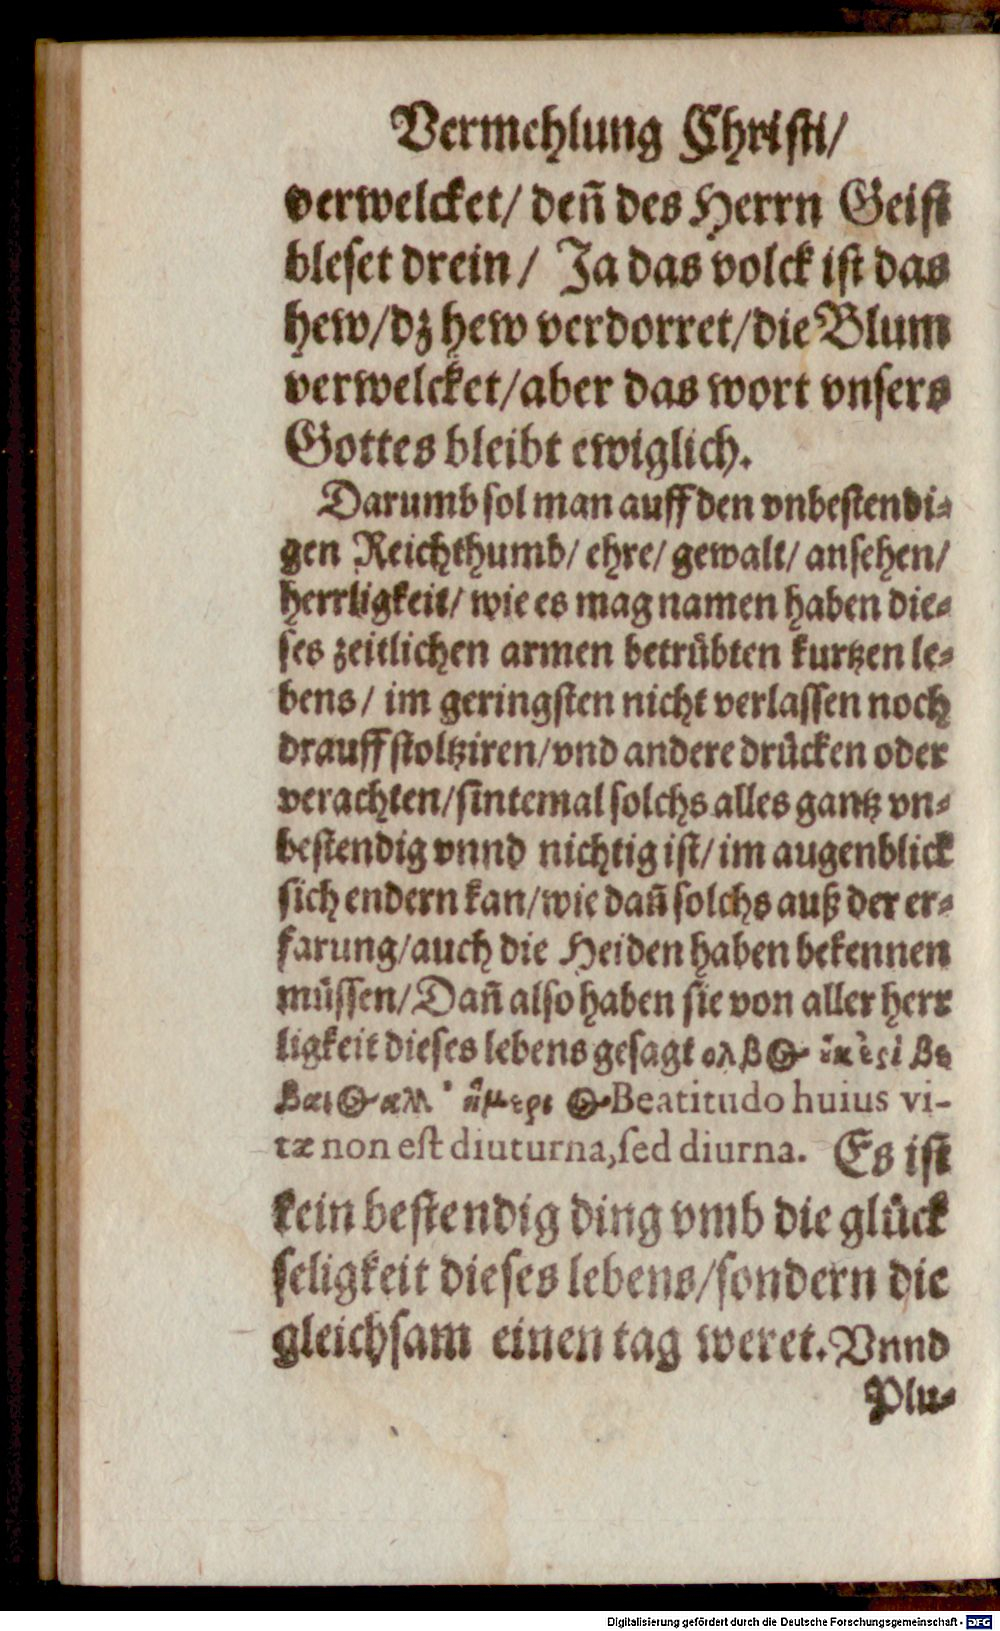 Vermehlung Christi/
verwelcket/ deñ des Herrn Geist
bleset drein/ Ja das volck ist das
hew/dz hew verdorret/die Blum
verwelcket/aber das wort vnsers
Gottes bleibt ewiglich.
Darumb sol man auff den vnbestendi-
gen Reichthumb/ ehre/ gewalt/ ansehen/
herrligkeit/ wie es mag namen haben die-
ses zeitlichen armen betrübten kurtzen le-
bens/ im geringsten nicht verlassen noch
drauff stoltziren/vnd andere drücken oder
verachten/sintemal solchs alles gantz vn-
bestendig vnnd nichtig ist/im augenblick
sich endern kan/wie dañ solchs auß der er-
farung/auch die Heiden haben bekennen
müssen/Dañ also haben sie von aller herr
ligkeit dieses lebens gesagt
Beatitudo huius vi-
tæ non est diuturna,sed diurna. Es ist
kein bestendig ding vmb die glück
seligkeit dieses lebens/sondern die
gleichsam einen tag weret.Vnnd
Plu-
Digitalisierung gefördert durch die Deutsche Forschungsgemeinschaft - DFG